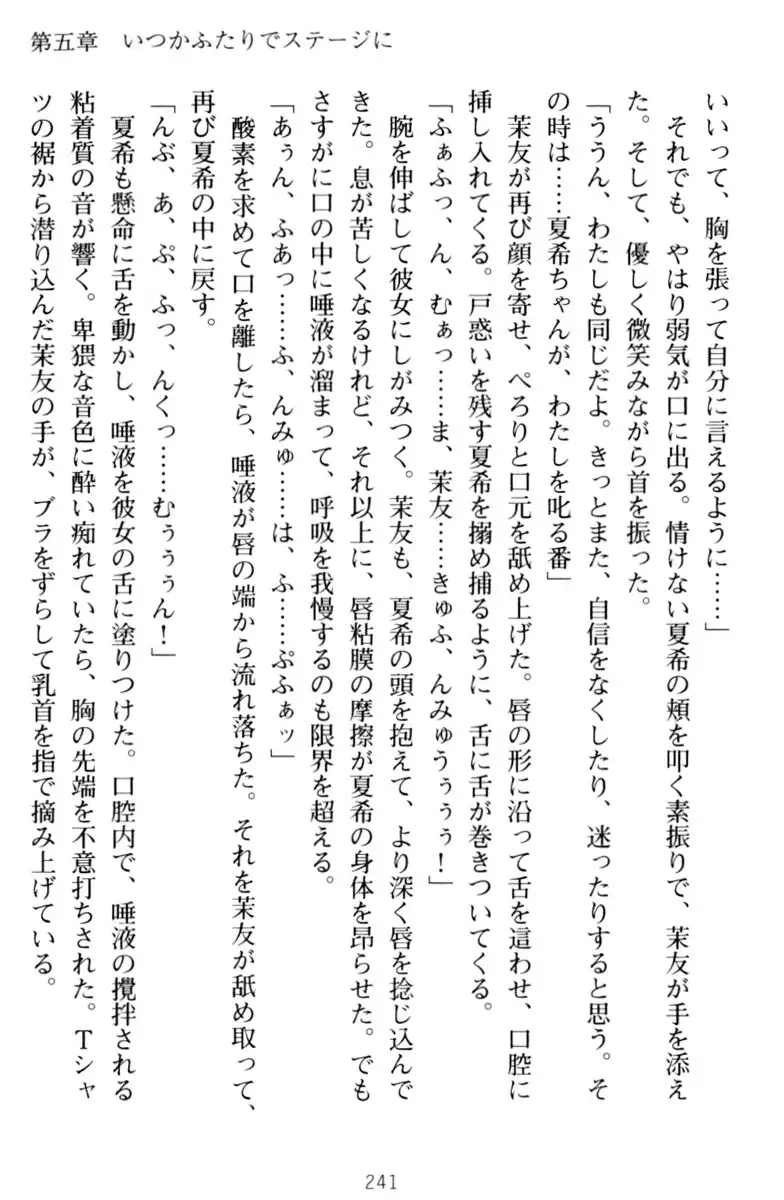 第五章　いつかふたりでステージに
いいって、胸を張って自分に言えるように……」
　それでも、やはり弱気が口に出る。情けない夏希の頬を叩く素振りで、茉友が手を添え
た。そして、優しく微笑みながら首を振った。
「ううん、わたしも同じだよ。きっとまた、自信をなくしたり、迷ったりすると思う。そ
の時は……夏希ちゃんが、わたしを叱る番」
　茉友が再び顔を寄せ、ぺろりと口元を舐め上げた。唇の形に沿って舌を這わせ、口腔に
挿し入れてくる。戸惑いを残す夏希を搦め捕るように、舌に舌が巻きついてくる。
「ふぁふっ、ん、むぁっ……ま、茉友……きゅふ、んみゅうぅぅぅ！」
　腕を伸ばして彼女にしがみつく。茉友も、夏希の頭を抱えて、より深く唇を捻じ込んで
きた。息が苦しくなるけれど、それ以上に、唇粘膜の摩擦が夏希の身体を昂らせた。でも
さすがに口の中に唾液が溜まって、呼吸を我慢するのも限界を超える。
「あぅん、ふあっ……ふ、んみゅ……は、ふ……ぷふぁッ」
　酸素を求めて口を離したら、唾液が唇の端から流れ落ちた。それを茉友が舐め取って、
再び夏希の中に戻す。
「んぶ、あ、ぷ、ふっ、んくっ……むぅぅぅん！」
　夏希も懸命に舌を動かし、唾液を彼女の舌に塗りつけた。口腔内で、唾液の攪拌される
粘着質の音が響く。卑猥な音色に酔い痴れていたら、胸の先端を不意打ちされた。Ｔシャ
ツの裾から潜り込んだ茉友の手が、ブラをずらして乳首を指で摘み上げている。
241